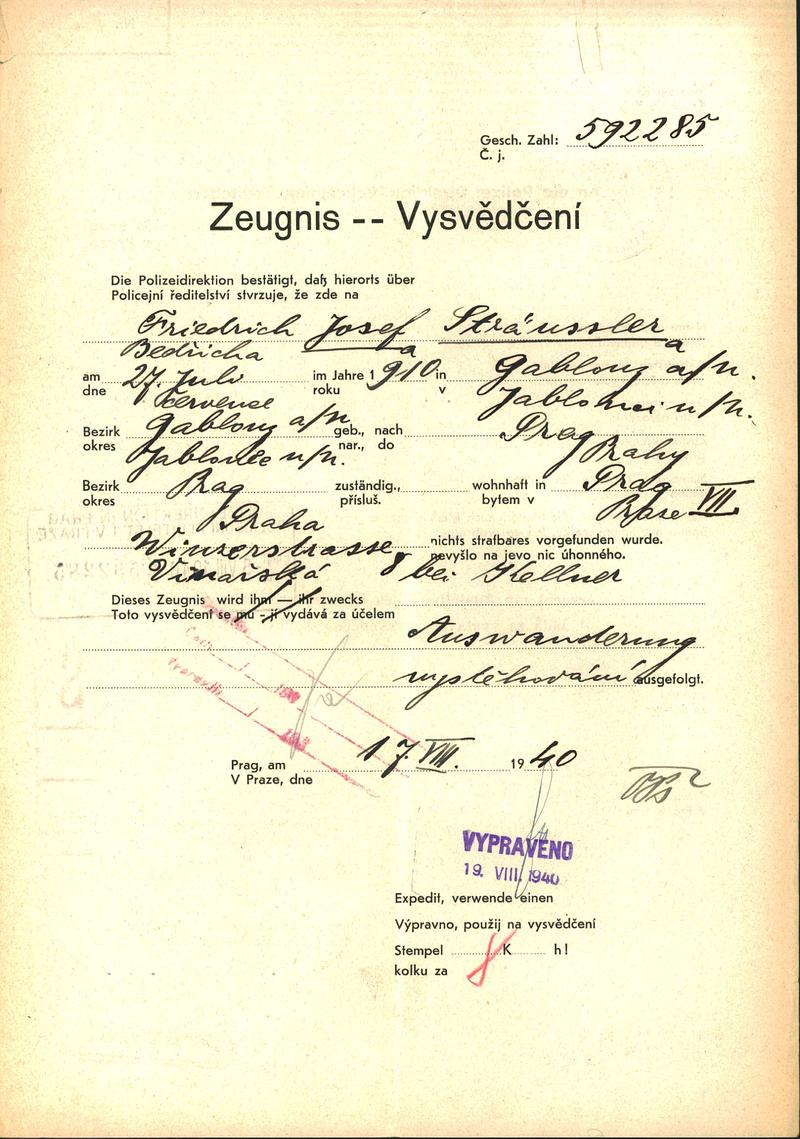 Gesch. Zahl: 592285
Č. j.
Zeugnis -- Vysvědčení
Die Polizeidirektion bestätigt, daß hierorts über
Policejní ředitelství stvrzuje, že zde na
Friedrich Josef Sträussler
Bedřicha a a
am 27. Juli im Jahre 1910 in Gablonz a/N.
dne července roku v Jablonci n/N.
Bezirk Gablonz a/N geb., nach Prag
okres Jablonec n/N. nar., do Prahy
Bezirk Prag zuständig., wohnhaft in Prag VII.
okres Praha přísluš. bytem v Praze
Winzerstrasse nichts strafbares vorgefunden wurde.
Vinařská 8 bei Kellner nevyšlo na jevo nic úhonného.
Dieses Zeugnis wird ihm — ihr zwecks
Toto vysvědčení se mu - jí vydává za účelem
Auswanderung
vystěhování ausgefolgt.
Prag, am 17. VIII. 1940
V Praze, dne
VYPRAVENO
19. VIII. 1940
Expedit, verwende einen
Výpravno, použij na vysvědčení
Stempel 8 K h!
kolku za